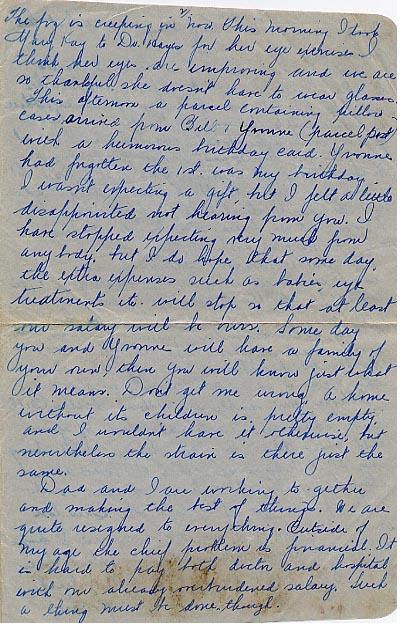 The fog is creeping in now. This morning I took
Mary Kay to Dr. Hayes for her eye exercises. I
think her eyes are improving and we are
so thankful she doesn't have to wear glasses.
This afternoon a parcel containing pillow
cases arrived from Bill & Yvonne (parcel post)
with a humorous birthday card. Yvonne
had forgotten the 1st. was my birthday.
I wasn't expecting a gift but I felt a little
disappointed not hearing from you. I
have stopped expecting very much from
anybody, but I do hope that some day
the extra expenses such as babies, eye
treatments etc. will stop so that at least
our salary will be ours. Some day
you and Yvonne will have a family of
your own then you will know just what
it means. Don't get me wrong, a home
without its children is pretty empty
and I wouldn't have it otherwise, but
nevertheless the strain is there just the
same.
Dad and I are working to gether
and making the best of things. We are
quite resigned to everything. Outside of
my age the chief problem is financial. It
is hard to pay both doctor and hospital
with our already overburdened salary. Such
a thing must be done, though.